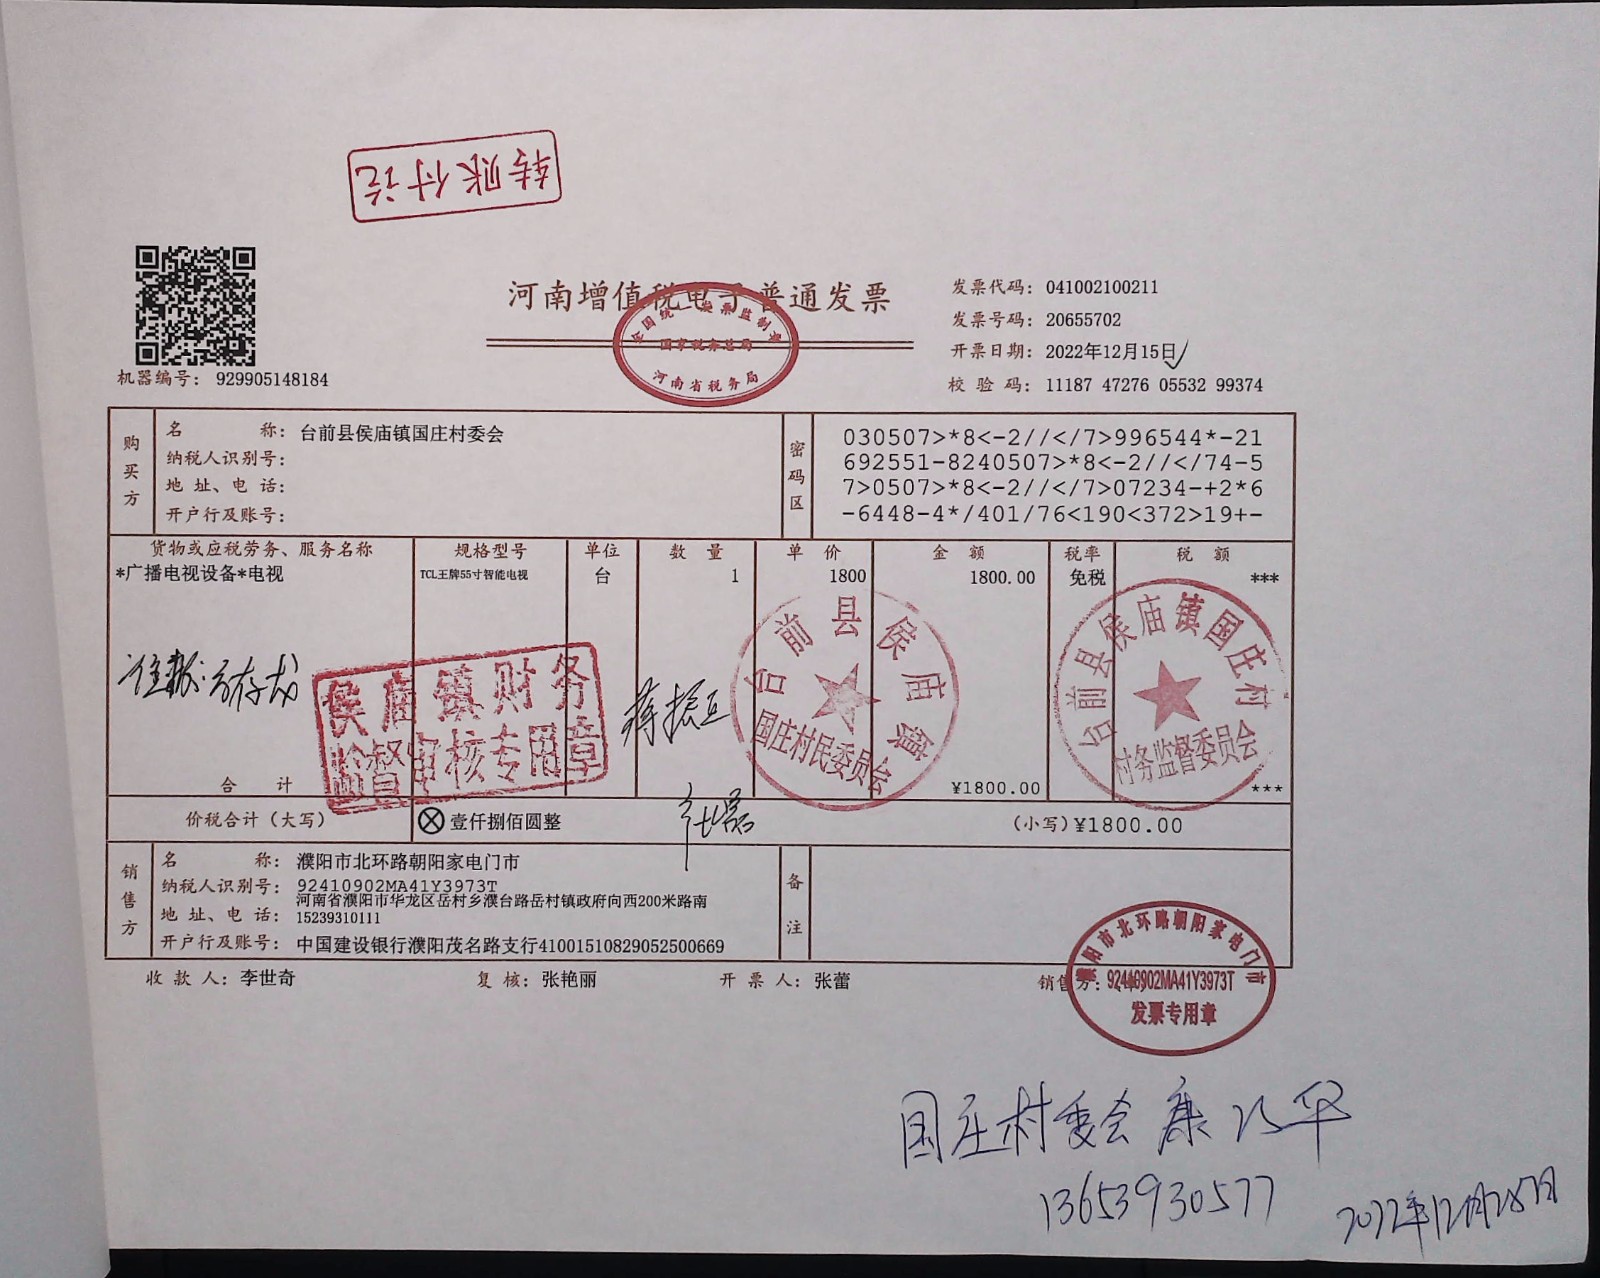 转账付讫
河南增值税电子普通发票
全国统一发票监制章
国家税务总局
河南省税务局
发票代码: 041002100211
发票号码: 20655702
开票日期: 2022年12月15日
校 验 码: 11187 47276 05532 99374
机器编号: 929905148184
购买方
名 称: 台前县侯庙镇国庄村委会
纳税人识别号:
地 址、电 话:
开户行及账号:
密码区
030507>*8<-2//</7>996544*-21
692551-8240507>*8<-2//</74-5
7>0507>*8<-2//</7>07234-+2*6
-6448-4*/401/76<190<372>19+-
货物或应税劳务、服务名称 规格型号 单位 数 量 单 价 金 额 税率 税 额
*广播电视设备*电视 TCL王牌55寸智能电视 台 1 1800 1800.00 免税 ***
侯庙镇财务
监督审核专用章
蒋振
台前县侯庙镇
国庄村民委员会
台前县侯庙镇国庄村
村务监督委员会
合 计 ¥1800.00 ***
价税合计(大写) ⊗壹仟捌佰圆整 (小写)¥1800.00
销售方
名 称: 濮阳市北环路朝阳家电门市
纳税人识别号: 92410902MA41Y3973T
地 址、电 话: 河南省濮阳市华龙区岳村乡濮台路岳村镇政府向西200米路南
15239310111
开户行及账号: 中国建设银行濮阳茂名路支行41001510829052500669
备注
收 款 人: 李世奇 复 核: 张艳丽 开 票 人: 张蕾 销售方:
濮阳市北环路朝阳家电门市
92410902MA41Y3973T
发票专用章
国庄村委会 康
13653930577
2022年12月28日